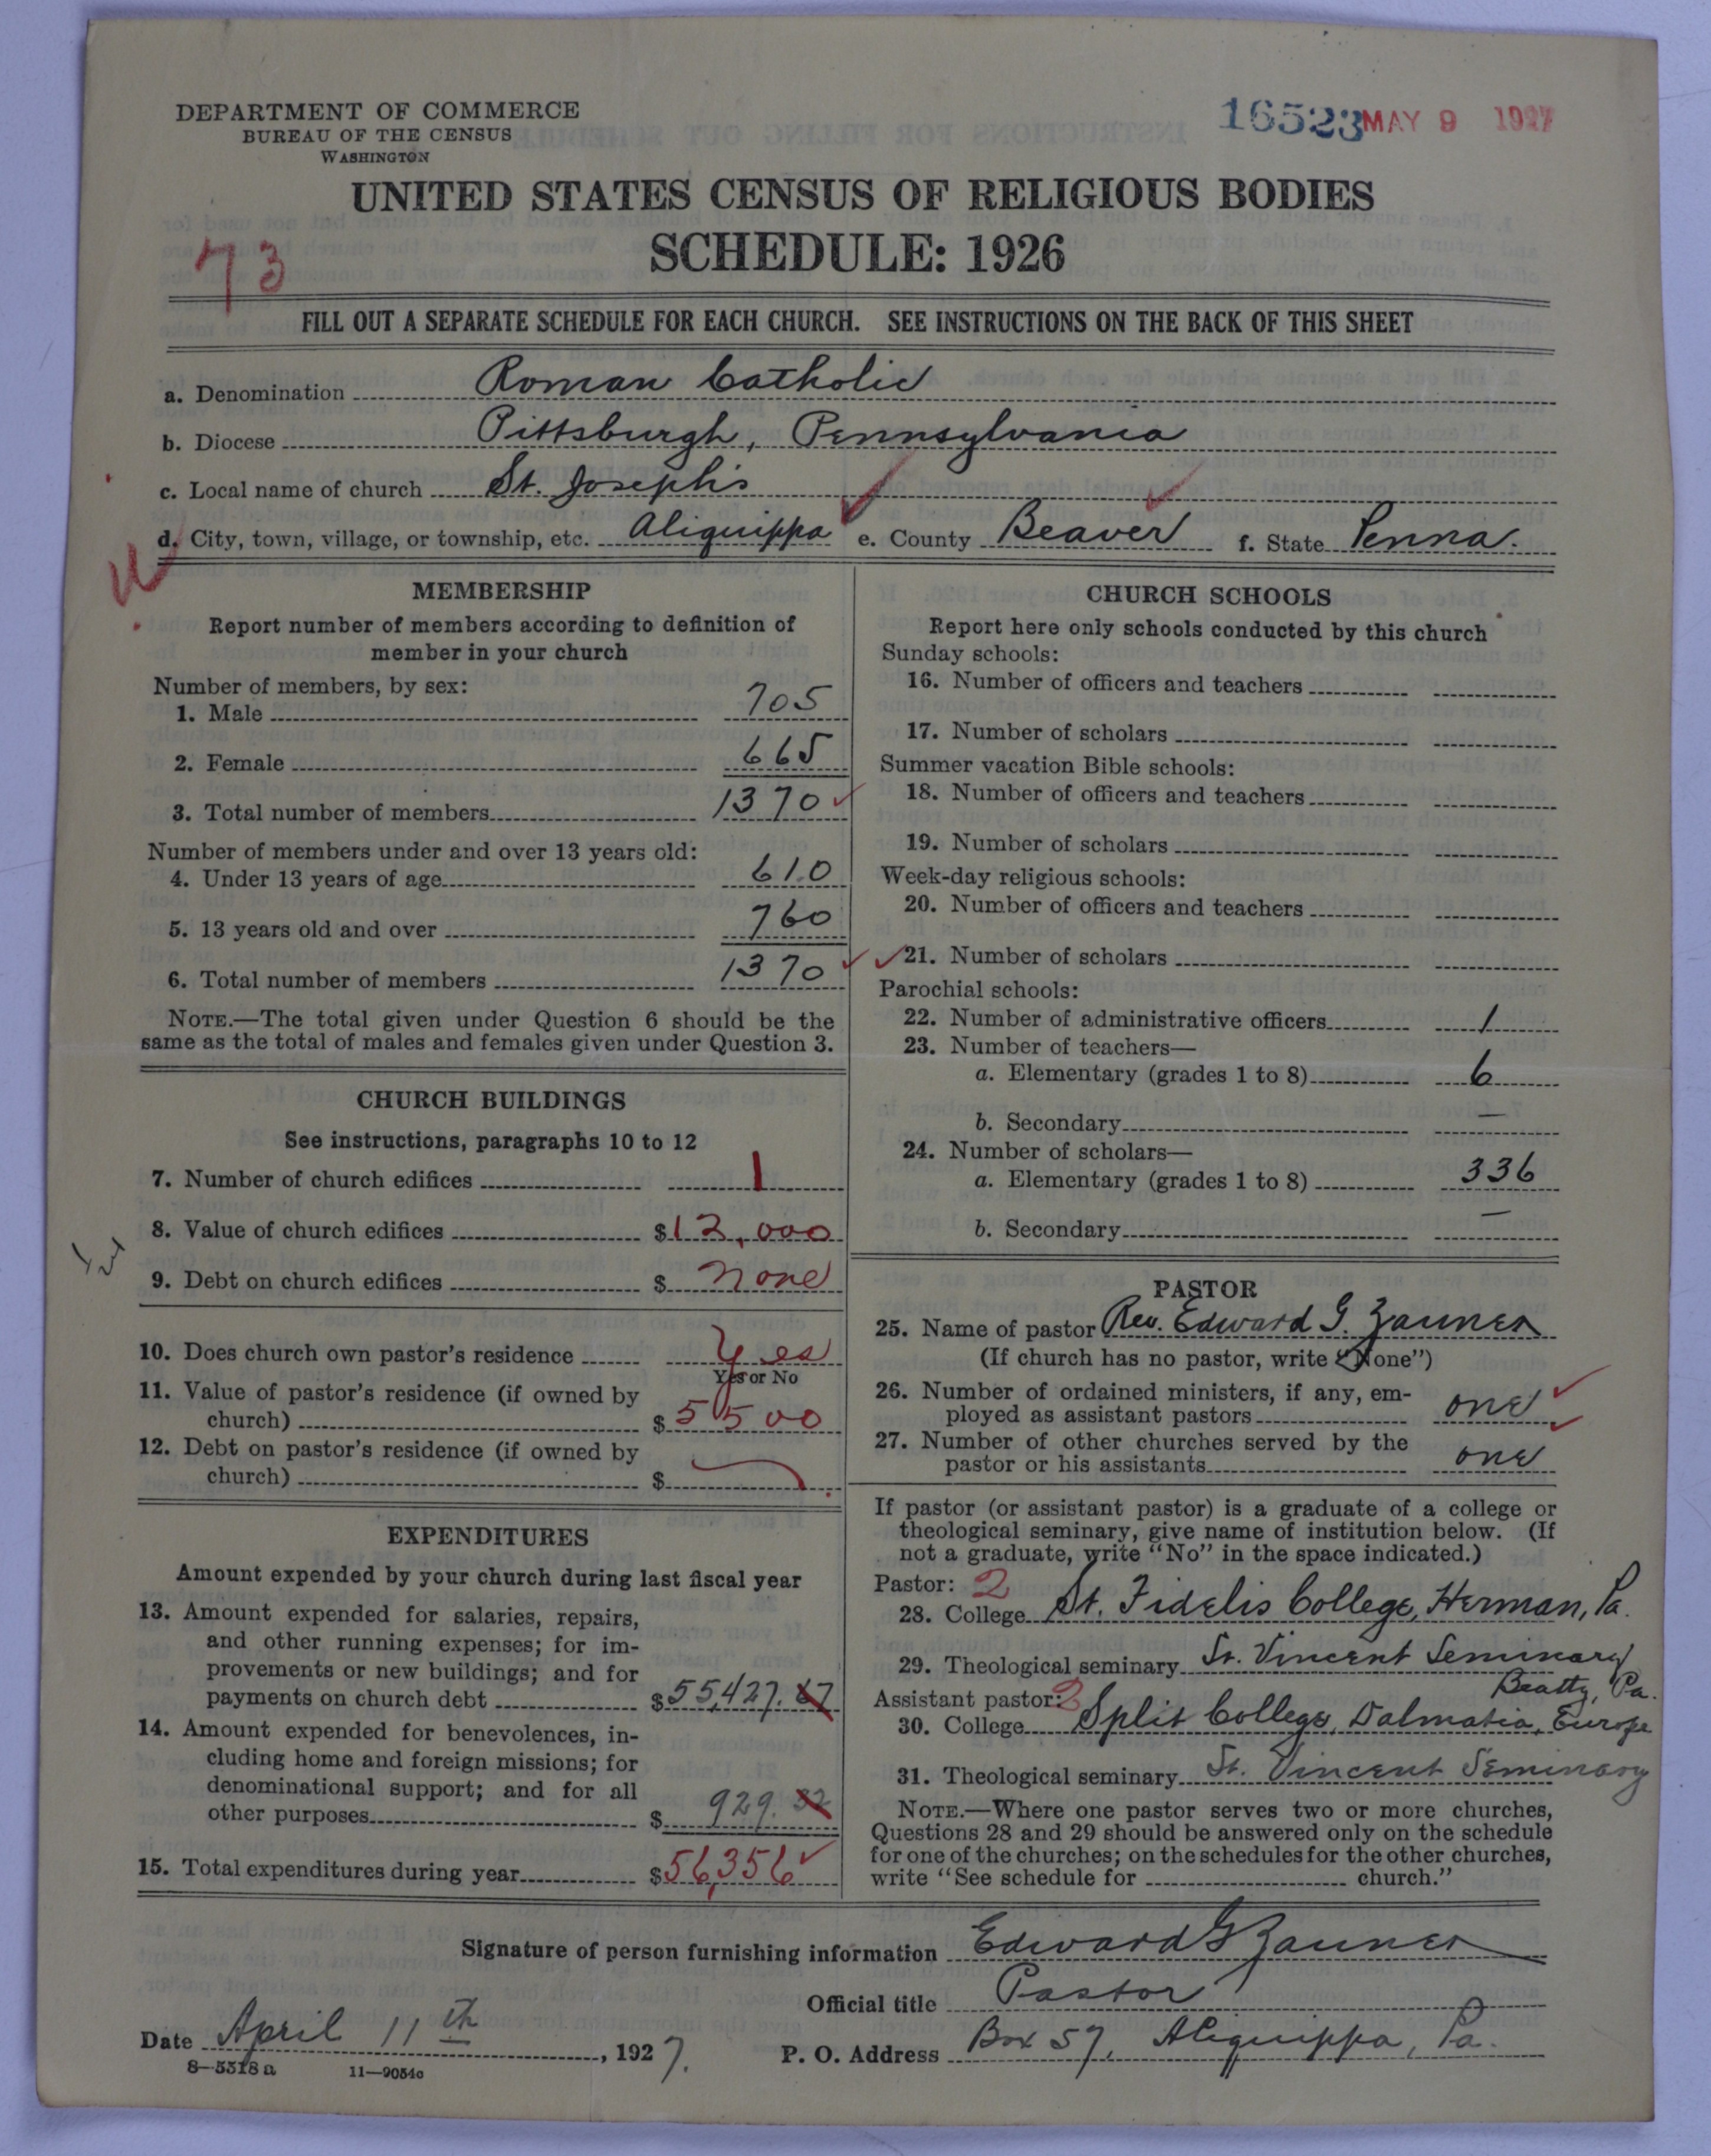 DEPARTMENT OF COMMERCE
BUREAU OF THE CENSUS
WASHINGTON
16523 MAY 9 1927
UNITED STATES CENSUS OF RELIGIOUS BODIES
SCHEDULE: 1926
73
FILL OUT A SEPARATE SCHEDULE FOR EACH CHURCH. SEE INSTRUCTIONS ON THE BACK OF THIS SHEET
a. Denomination Roman Catholic
b. Diocese Pittsburgh, Pennsylvania
c. Local name of church St. Joseph's
d. City, town, village, or township, etc. Aliquippa e. County Beaver f. State Penna.
MEMBERSHIP
Report number of members according to definition of
member in your church
Number of members, by sex:
1. Male 705
2. Female 665
3. Total number of members 1370
Number of members under and over 13 years old:
4. Under 13 years of age 610
5. 13 years old and over 760
6. Total number of members 1370
NOTE.—The total given under Question 6 should be the
same as the total of males and females given under Question 3.
CHURCH BUILDINGS
See instructions, paragraphs 10 to 12
7. Number of church edifices 1
8. Value of church edifices $12,000
9. Debt on church edifices $ none
10. Does church own pastor's residence Yes
Yes or No
11. Value of pastor's residence (if owned by
church) $5500
12. Debt on pastor's residence (if owned by
church) $
EXPENDITURES
Amount expended by your church during last fiscal year
13. Amount expended for salaries, repairs,
and other running expenses; for im-
provements or new buildings; and for
payments on church debt $55,427.67
14. Amount expended for benevolences, in-
cluding home and foreign missions; for
denominational support; and for all
other purposes $ 929.32
15. Total expenditures during year $56,356
CHURCH SCHOOLS
Report here only schools conducted by this church
Sunday schools:
16. Number of officers and teachers
17. Number of scholars
Summer vacation Bible schools:
18. Number of officers and teachers
19. Number of scholars
Week-day religious schools:
20. Number of officers and teachers
21. Number of scholars
Parochial schools:
22. Number of administrative officers 1
23. Number of teachers—
a. Elementary (grades 1 to 8) 6
b. Secondary —
24. Number of scholars—
a. Elementary (grades 1 to 8) 336
b. Secondary —
PASTOR
25. Name of pastor Rev. Edward G. Zauner
(If church has no pastor, write "None")
26. Number of ordained ministers, if any, em-
ployed as assistant pastors one
27. Number of other churches served by the
pastor or his assistants one
If pastor (or assistant pastor) is a graduate of a college or
theological seminary, give name of institution below. (If
not a graduate, write "No" in the space indicated.)
Pastor: 2
28. College St. Fidelis College, Herman, Pa.
29. Theological seminary St. Vincent Seminary
Beatty, Pa.
Assistant pastor: 2
30. College Split College, Dalmatia, Europe
31. Theological seminary St. Vincent Seminary
NOTE.—Where one pastor serves two or more churches,
Questions 28 and 29 should be answered only on the schedule
for one of the churches; on the schedules for the other churches,
write "See schedule for church."
Signature of person furnishing information Edward G Zauner
Official title Pastor
Date April 11th, 1927. P. O. Address Box 57, Aliquippa, Pa.
8—5518a 11—9054c